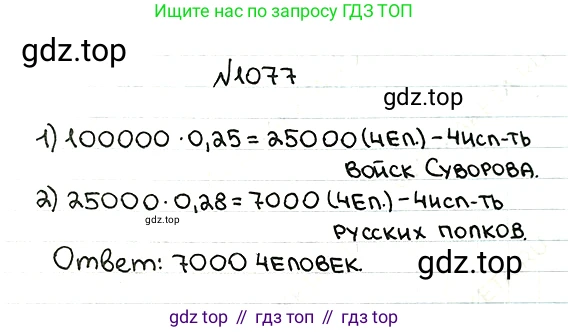 Ищите нас по запросу ГДЗ ТОП
gdz.top
№1077
gdz.top
1) 100000 · 0,25 = 25000 (чел.) – числ-ть
войск Суворова.
2) 25000 · 0,28 = 7000 (чел.) – числ-ть
gdz.top
русских полков.
Ответ: 7000 человек.
gdz.top
gdz.top // гдз топ // gdz.top